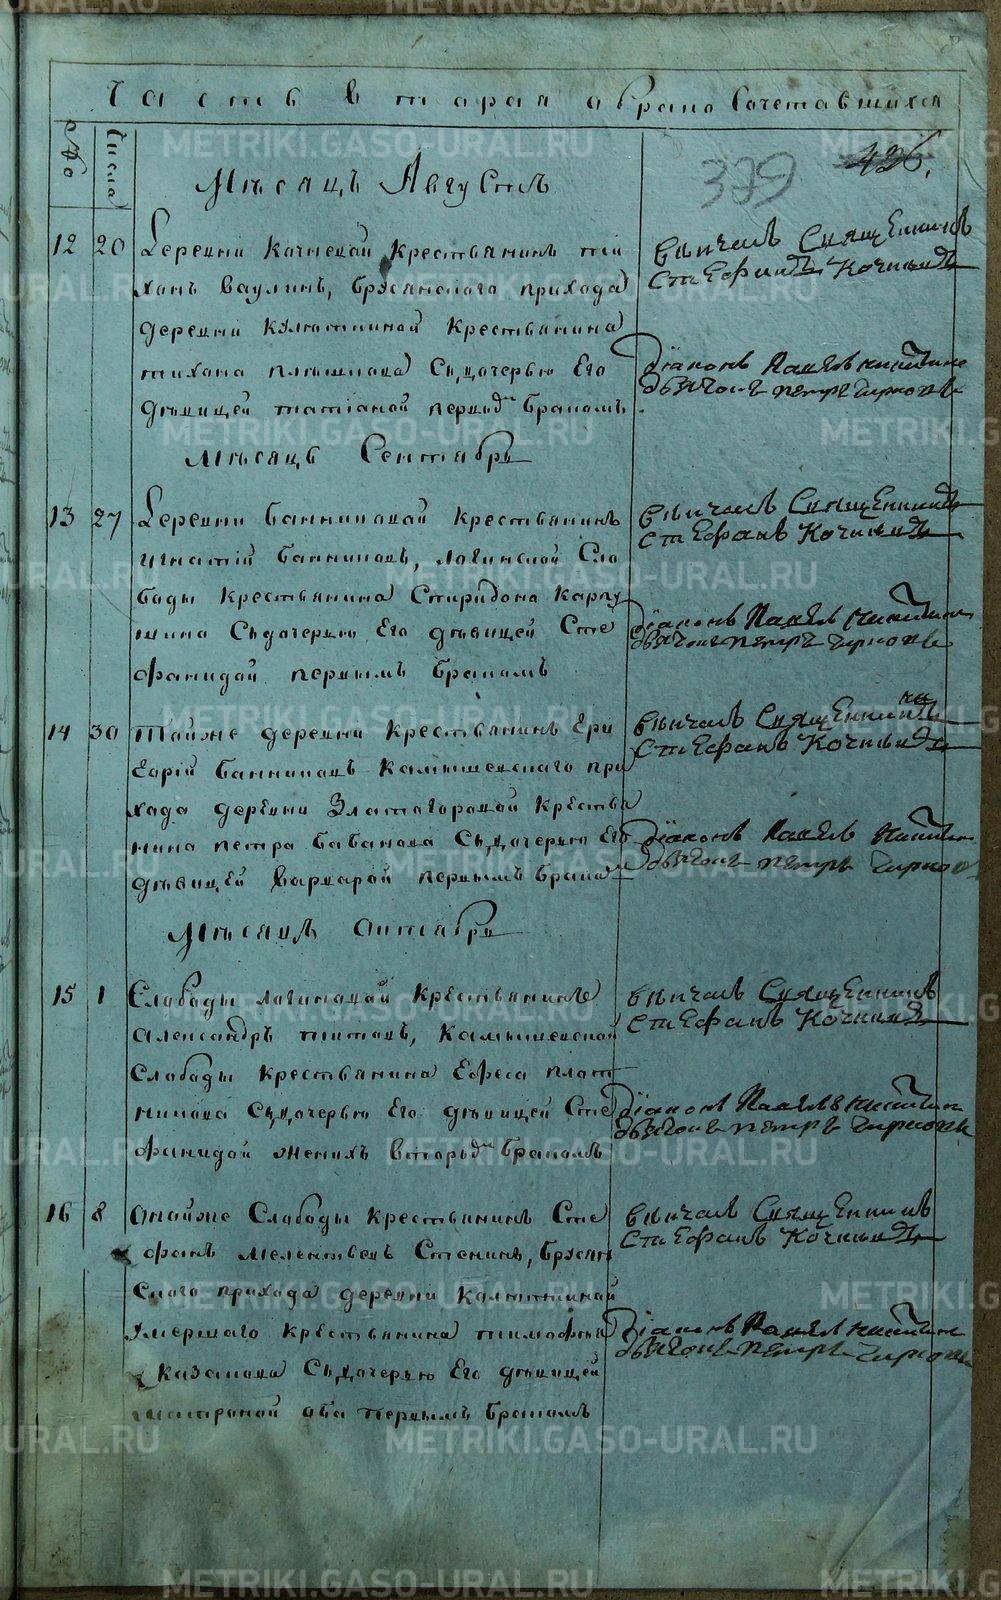 Часть вторая о бракосочетавшихся
№
Числа
379
426.
Месяцъ Августъ
12 20 Деревни Качневой крестьянинъ Ти
хонъ Ваулинъ, Брусянскаго прихода
деревни Кулюткиной крестьянина
Тихона Плешкова съ дочерью Его
девицей Татіаной первыъ бракомъ
Венчалъ Священникъ
Стефанъ Кочневъ
Діаконъ Павелъ Никитин
дьячокъ Петръ Чирковъ
Месяцъ Сентябрь
13 27 Деревни Банниковой Крестьянинъ
Игнатій Банниковъ, Логинской Сло
боды Крестьянина Спиридона Карпу
шина съ дочерью Его девицей Сте
фанидой первымъ бракомъ
Венчалъ Священникъ
Стефанъ Кочневъ
Діаконъ Павелъ Никитин
дьячокъ Петръ Чирковъ
14 30 Тойже деревни крестьянинъ Гри
горій Банниковъ Камышевскаго при
хода деревни Златагоровой крестья
нина Петра Бабанова съ дочерью Его
девицей Варварой первымъ брака
Венчалъ Священникъ
Стефанъ Кочневъ
Діаконъ Павелъ Никитин
дьячокъ Петръ Чирков
Месяцъ Октябрь
15 1 Слободы Логиновой крестьянинъ
Александръ Титовъ, Камышевской
Слободы крестьянина Ефреса Плот
никова съ дочерью Его девицей Сте
фанидой женихъ вторыъ бракомъ
Венчалъ Священникъ
Стефанъ Кочневъ
Діаконъ Павелъ Никитин
дьячокъ Петръ Чирковъ
16 8 Тойже Слободы крестьянинъ Сте
фанъ Мелентьевъ Стенинъ, Брусян
скаго прихода деревни Колюткиной
умершаго крестьянина Тимофея
Казакова съ дочерью Его девицей
Матроной оба первымъ бракомъ
Венчалъ Священникъ
Стефанъ Кочневъ
Діаконъ Павелъ Никитин
дьячокъ Петръ Чирковъ
METRIKI.GASO-URAL.RU